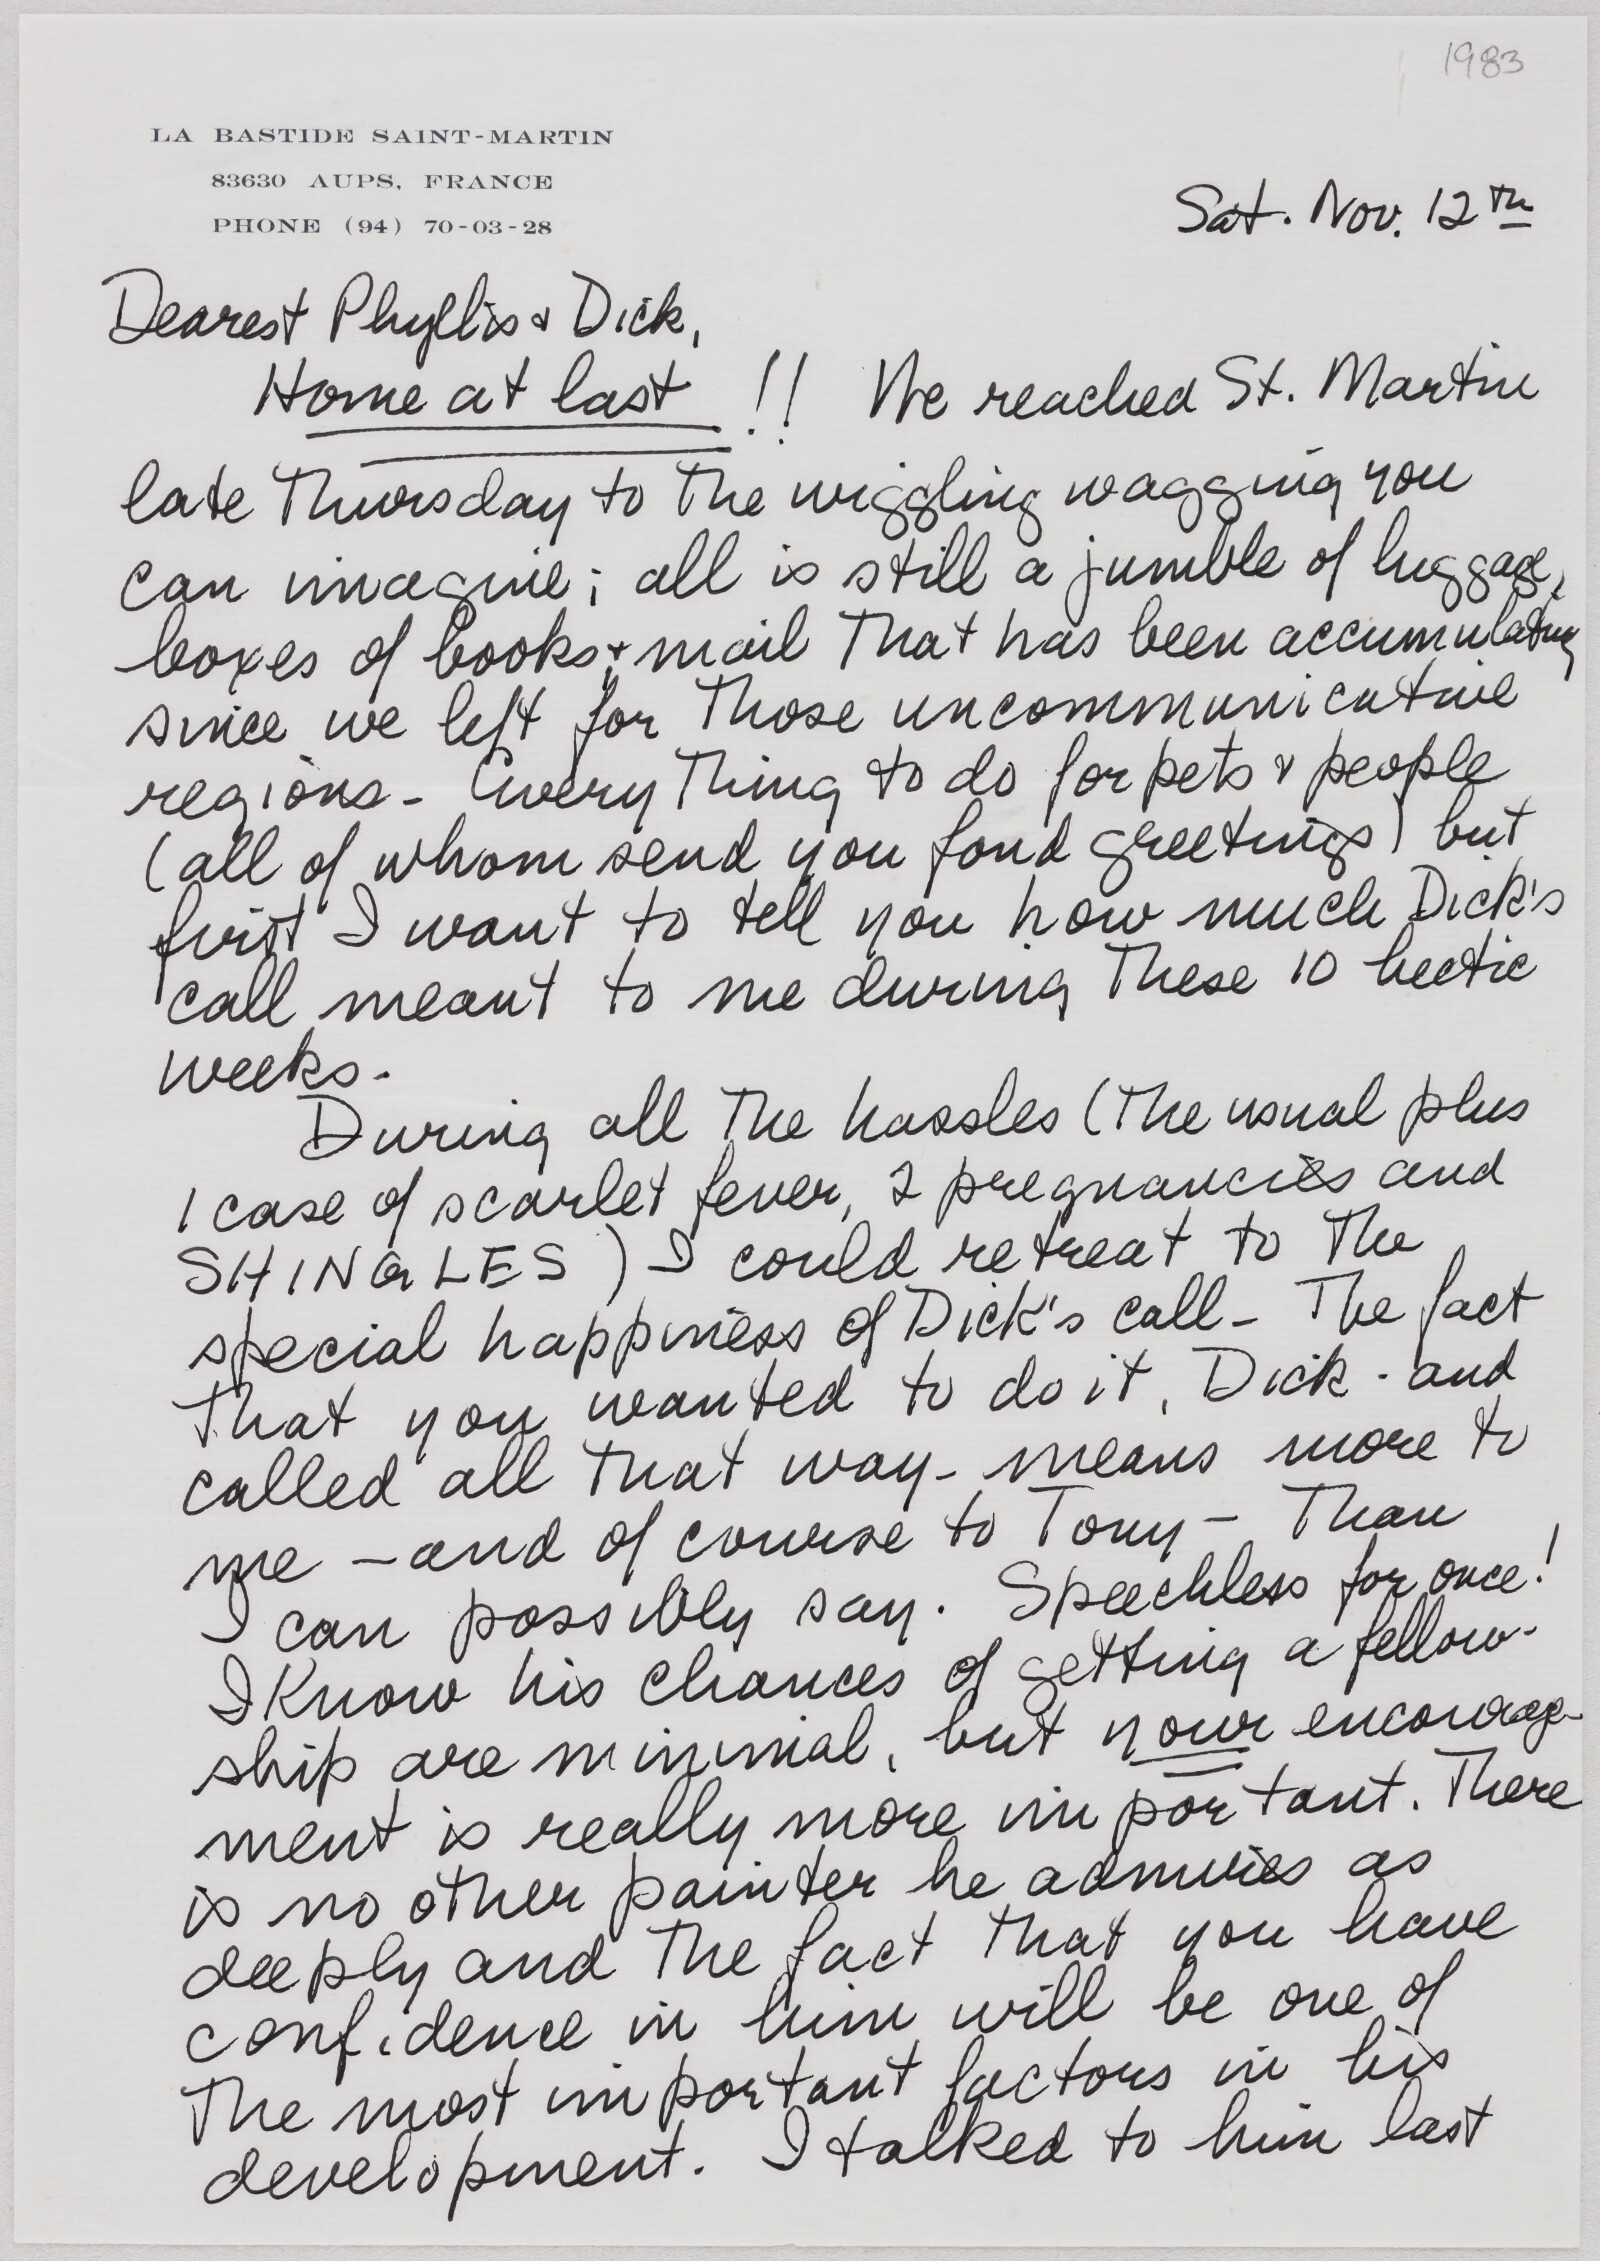 1983
LA BASTIDE SAINT-MARTIN
83630 AUPS, FRANCE
PHONE (94) 70-03-28
Sat. Nov. 12th
Dearest Phyllis & Dick,
Home at last!! We reached St. Martin
late Thursday to the wiggling wagging you
can imagine; all is still a jumble of luggage,
boxes of books & mail that has been accumulating
since we left for those uncommunicative
regions - Everything to do for pets & people
(all of whom send you fond greetings) but
first I want to tell you how much Dick's
call meant to me during these 10 hectic
weeks.
During all the hassles (the usual plus
1 case of scarlet fever, 2 pregnancies and
SHINGLES) I could retreat to the
special happiness of Dick's call - The fact
that you wanted to do it, Dick - and
called all that way - means more to
me - and of course to Tony - than
I can possibly say. Speechless for once!
I know his chances of getting a fellow-
ship are minimal, but your encourage-
ment is really more important. There
is no other painter he admires as
deeply and the fact that you have
confidence in him will be one of
the most important factors in his
development. I talked to him last